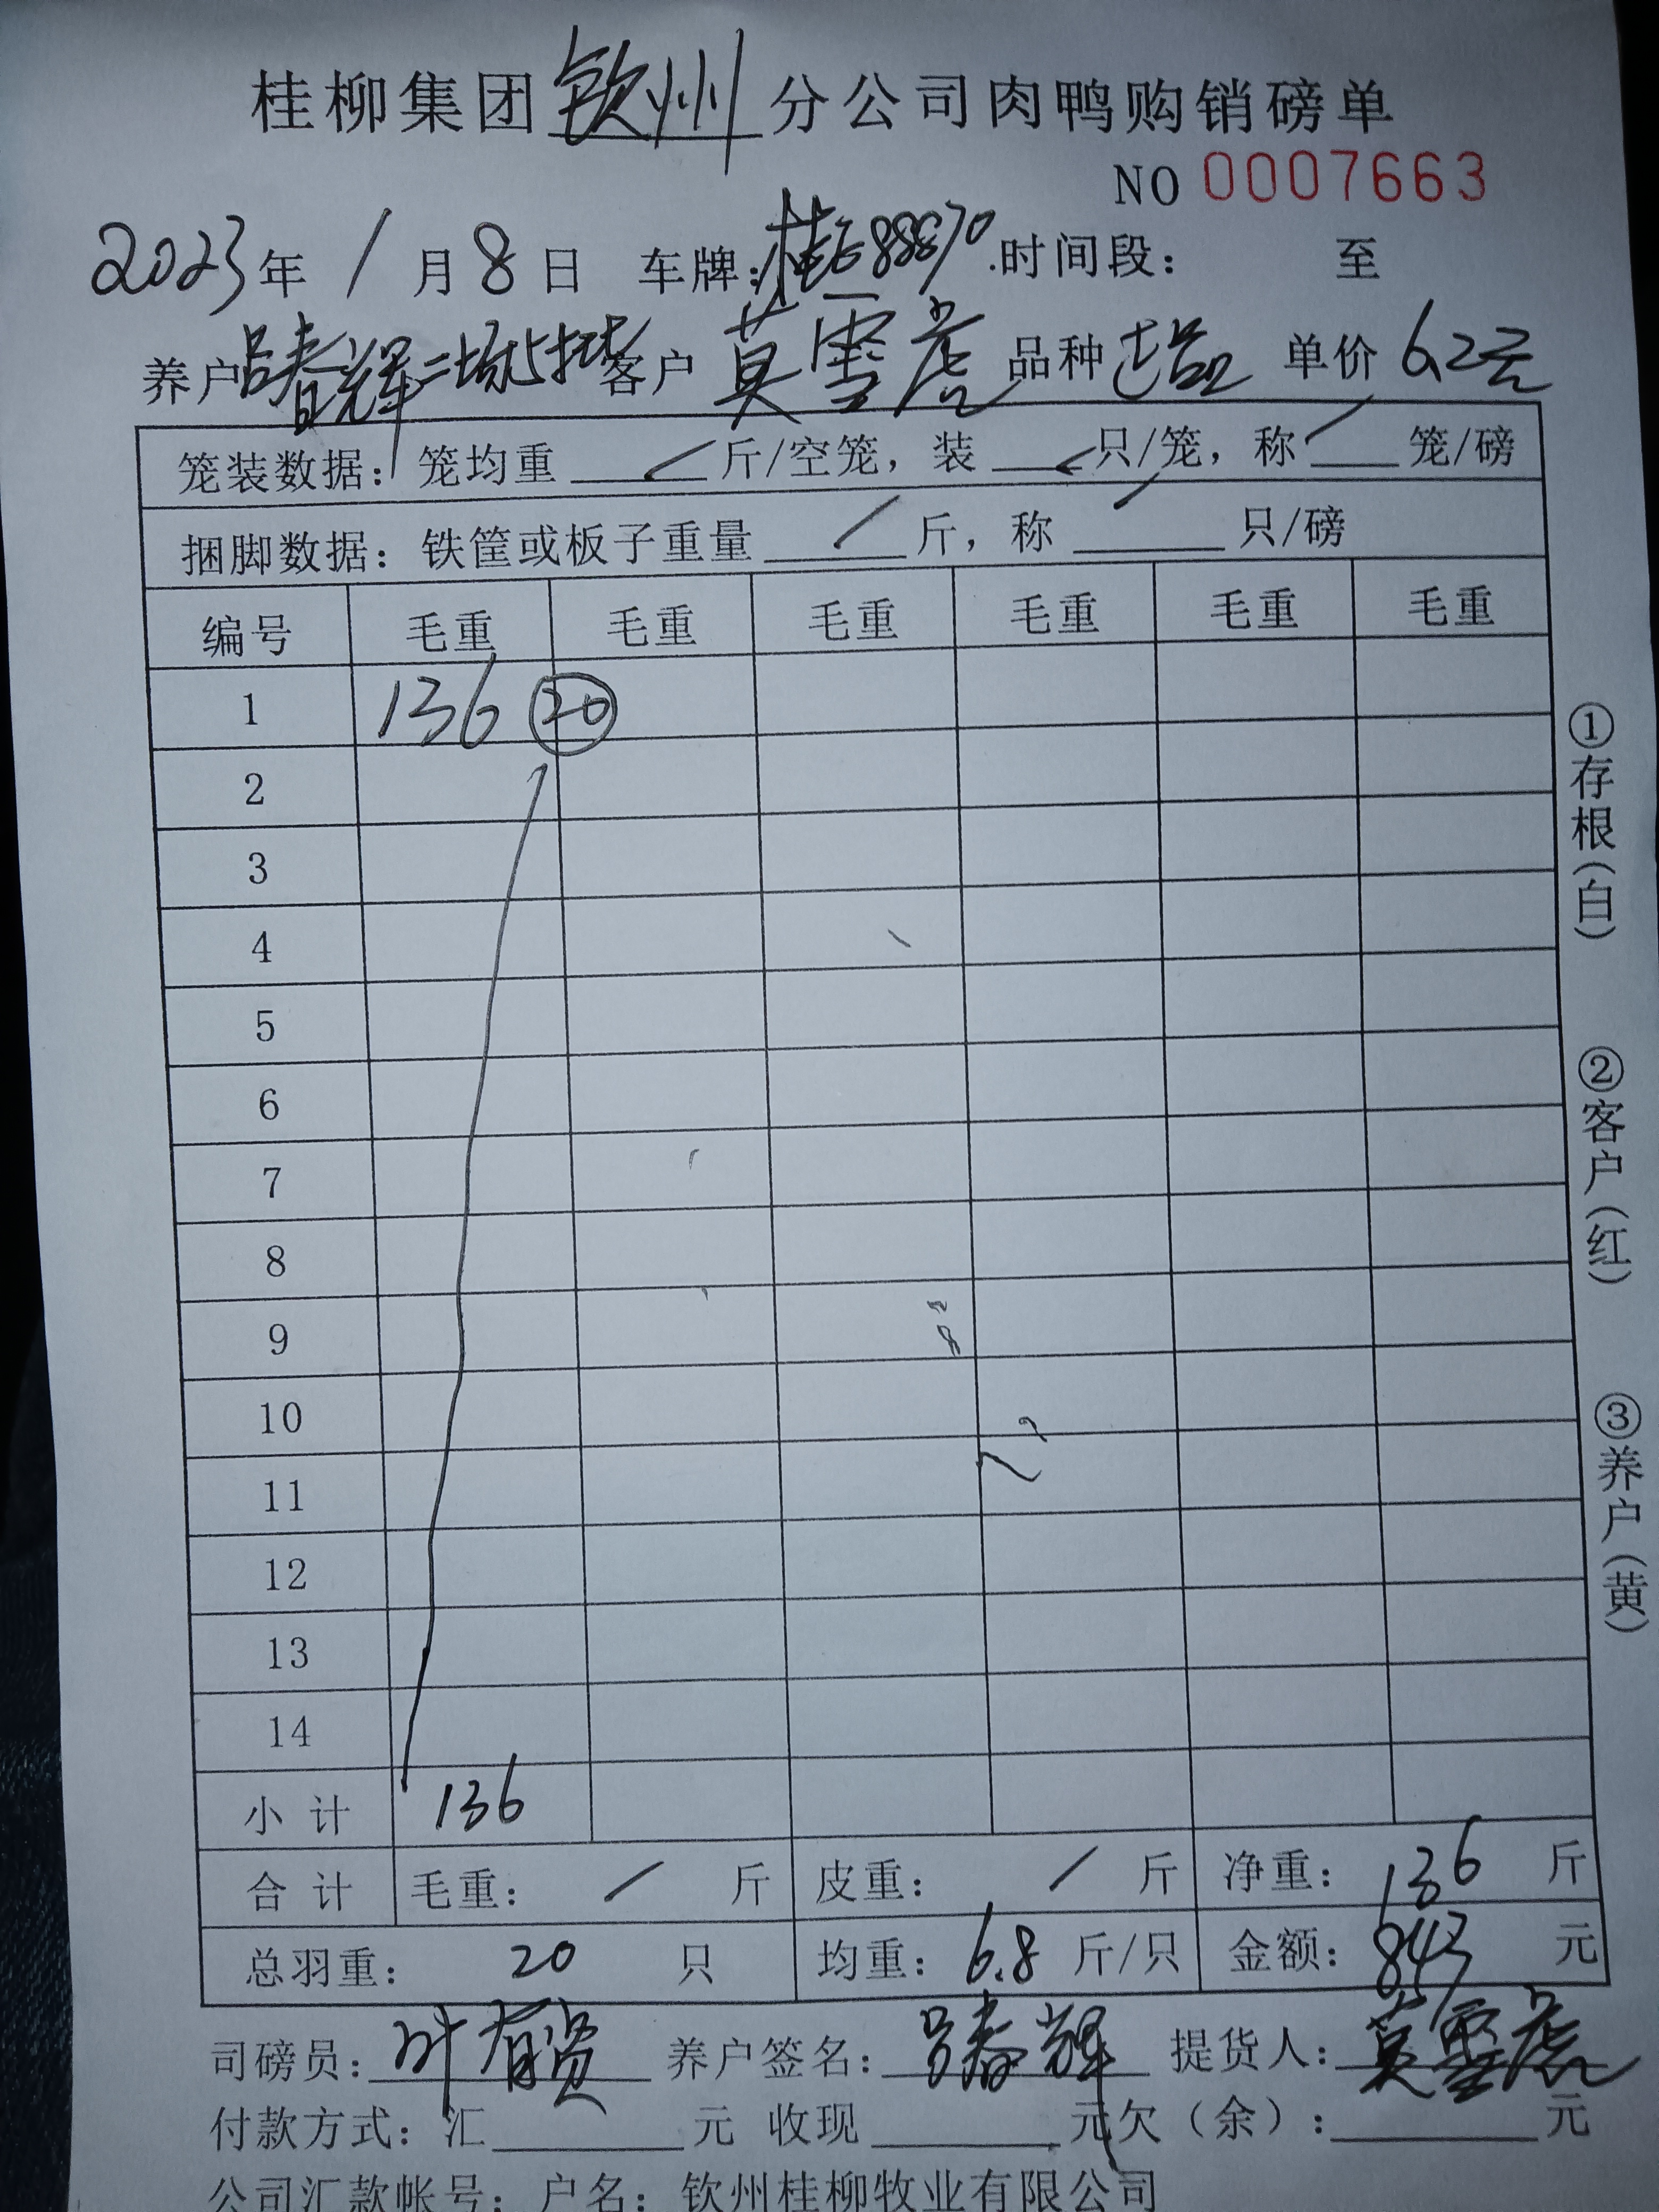 桂柳集团钦州分公司肉鸭购销磅单
NO 0007663
2023年1月8日 车牌:桂E88870.时间段: 至
养户吕春辉二场5批 客户 莫雪虎 品种 单价6.2元
笼装数据: 笼均重 / 斤/空笼, 装 / 只/笼, 称 / 笼/磅
捆脚数据: 铁筐或板子重量 / 斤, 称 / 只/磅
编号 毛重 毛重 毛重 毛重 毛重 毛重
1 136 20
2
3
4
5
6
7
8
9
10
11
12
13
14
小计 136
合计 毛重: / 斤 皮重: / 斤 净重: 136 斤
总羽重: 20 只 均重: 6.8 斤/只 金额: 843 元
司磅员: 叶有贤 养户签名: 吕春辉 提货人: 莫雪虎
付款方式: 汇 元 收现 元欠(余): 元
公司汇款帐号: 户名: 钦州桂柳牧业有限公司
①存根(白)
②客户(红)
③养户(黄)